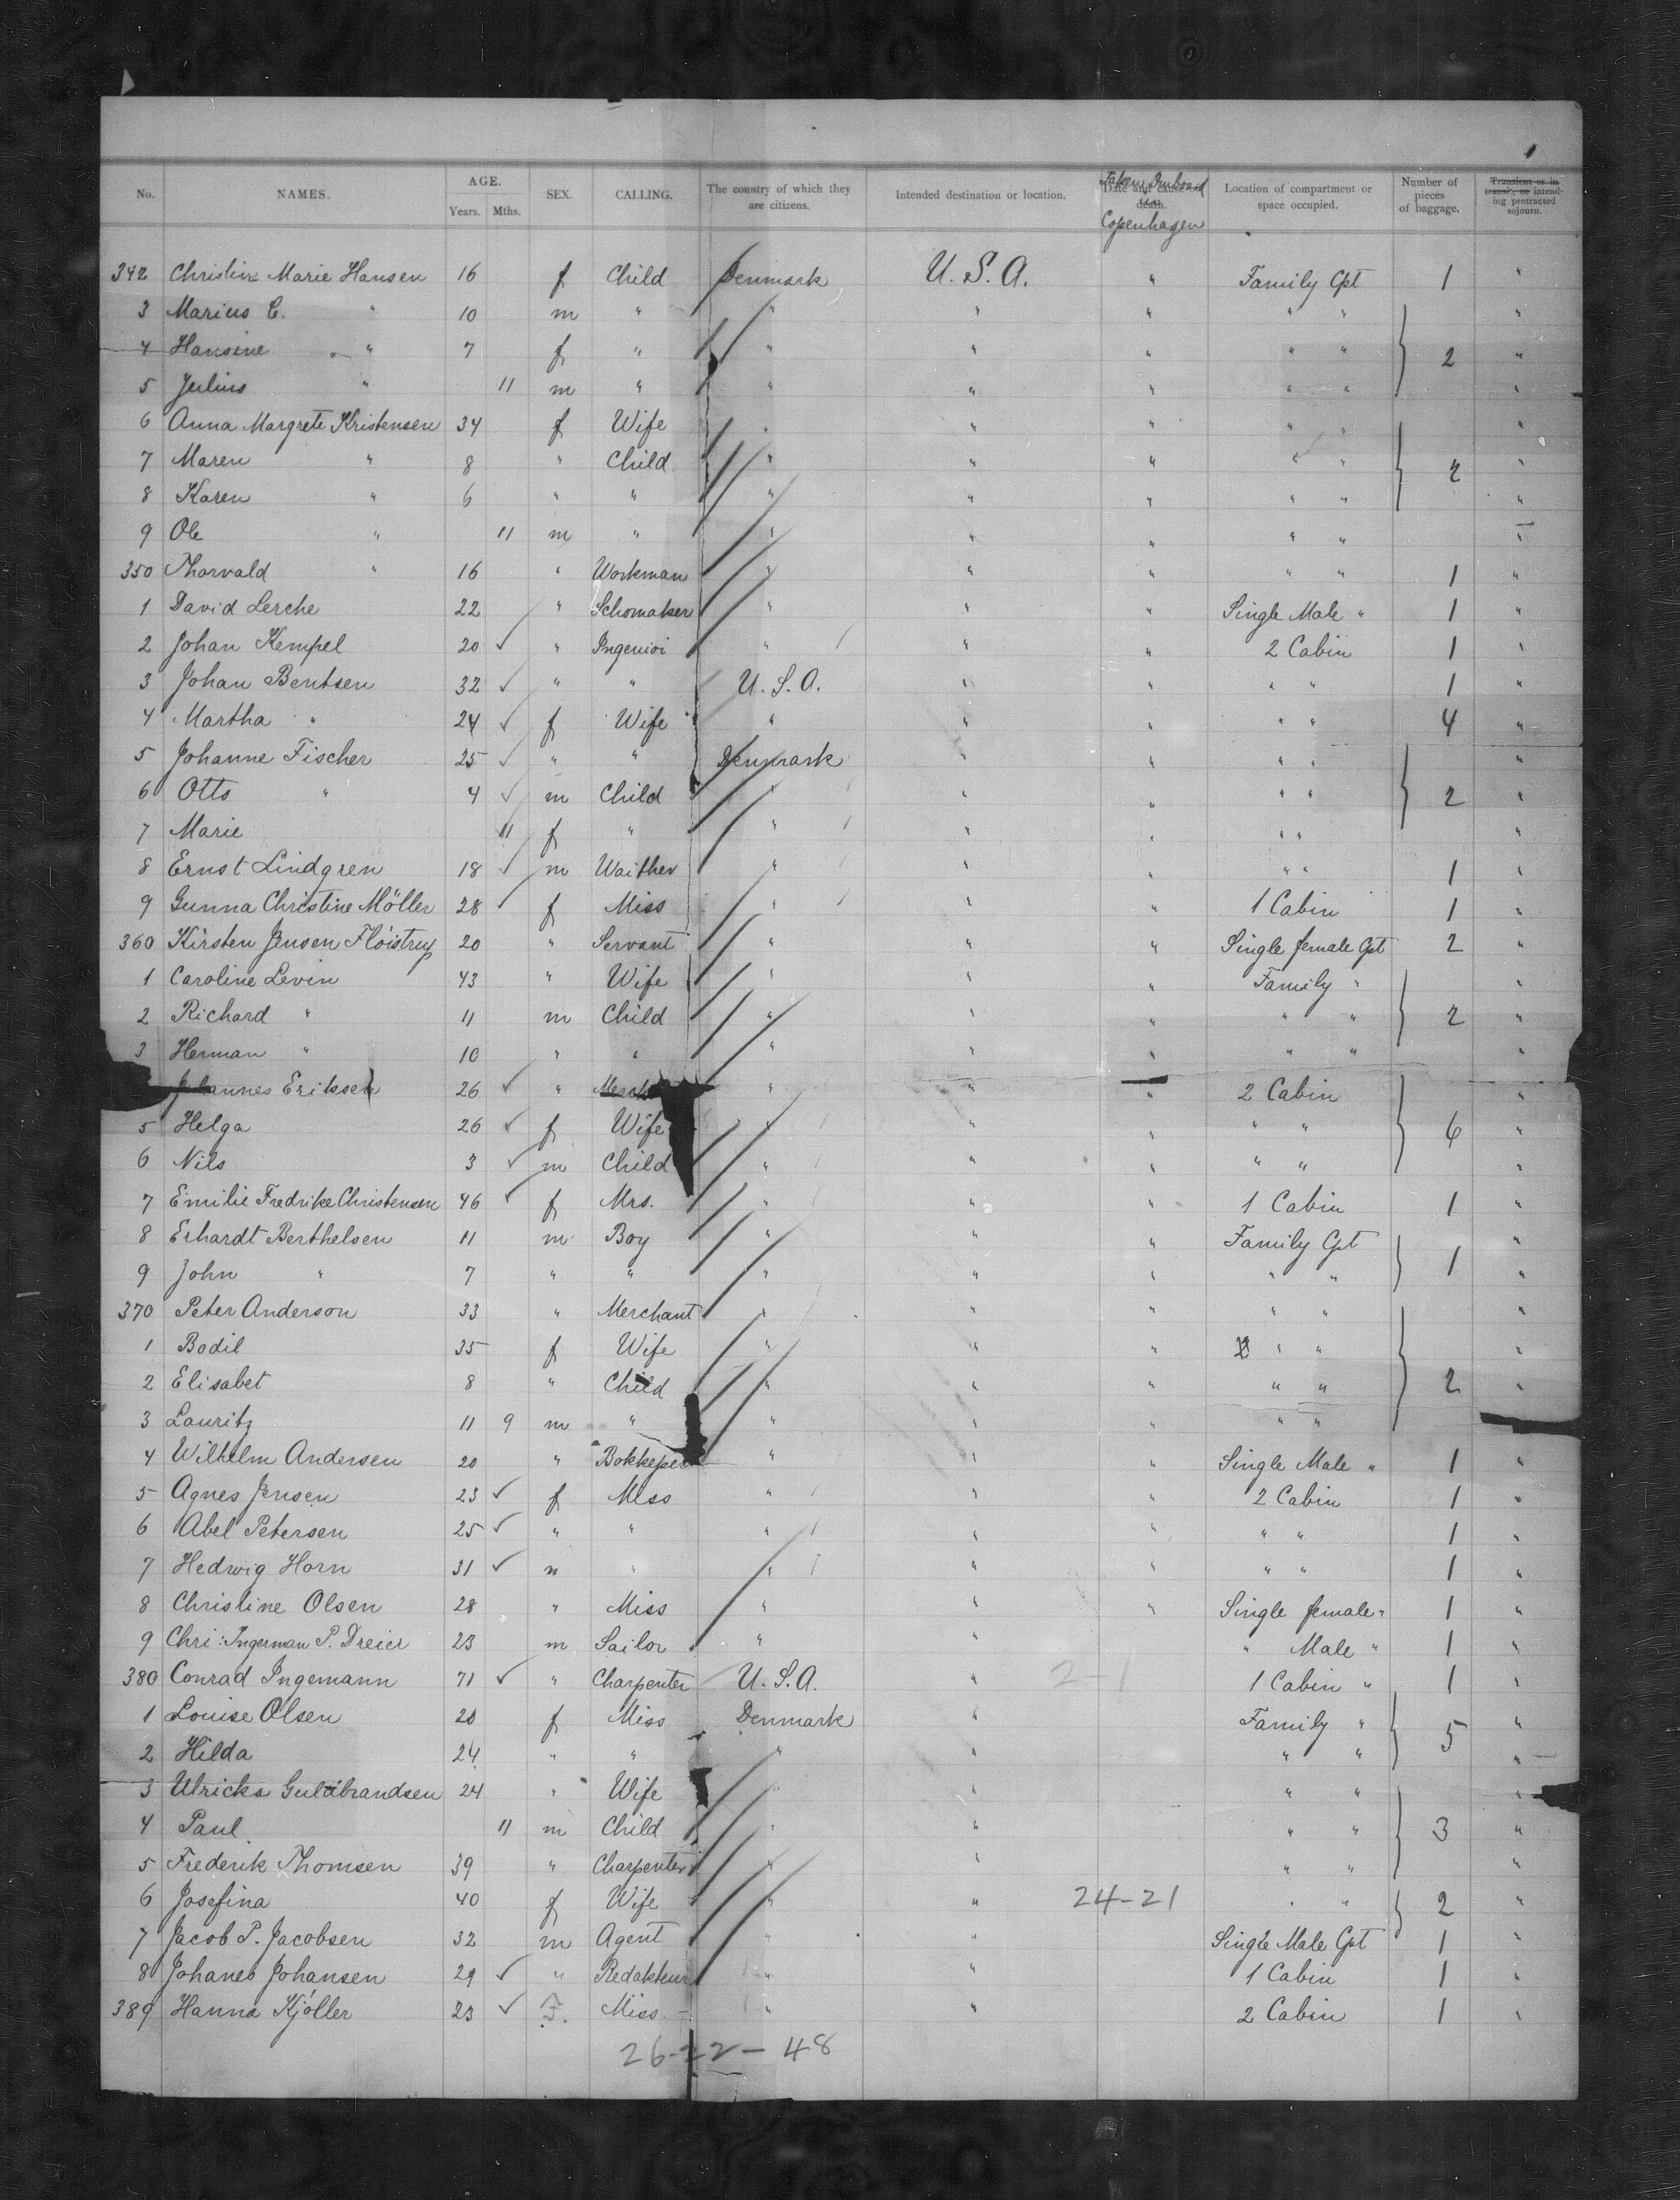 No. NAMES. AGE. Years. Mths. SEX. CALLING. The country of which they are citizens. Intended destination or location. Date and cause of death. Taken Onboard in Copenhagen Location of compartment or space occupied. Number of pieces of baggage. Transient or in transit, or intending protracted sojourn.
342 Christine Marie Hansen 16 f Child Denmark U. S. A. " Family Cpt 1 "
3 Marius C. " 10 m " " " " " " "
4 Hansine " 7 f " " " " " " 2 "
5 Julius " 11 m " " " " " " "
6 Anna Margrete Kristensen 34 f Wife " " " " " "
7 Maren " 8 " Child " " " " " 2 "
8 Karen " 6 " " " " " " " "
9 Ole " 11 m " " " " " " "
350 Thorvald " 16 " Workman " " " " " 1 "
1 David Lerche 22 " Schomaker " " " Single Male " 1 "
2 Johan Kempel 20 ✓ " Ingeniöi " " " 2 Cabin 1 "
3 Johan Bentsen 32 ✓ " " U. S. A. " " " " 1 "
4 Martha " 24 ✓ f Wife " " " " " 4 "
5 Johanne Fischer 25 ✓ " " Denmark " " " " "
6 Otto " 4 ✓ m Child " " " " " 2 "
7 Marie 11 f " " " " " " "
8 Ernst Lindgren 18 ✓ m Waither " " " " " 1 "
9 Gunna Christine Möller 28 ✓ f Miss " " " 1 Cabin 1 "
360 Kirsten Jensen Flöistrup 20 " Servant " " " Single female Cpt 2 "
1 Caroline Levin 43 " Wife " " " Family " "
2 Richard " 11 m Child " " " " " 2 "
3 Herman " 10 " " " " " " " "
Johannes Eriksen 26 ✓ " " " " 2 Cabin "
5 Helga 26 ✓ f Wife " " " " " 6 "
6 Nils 3 ✓ m Child " " " " " "
7 Emilie Fredrike Christensen 46 ✓ f Mrs. " " " 1 Cabin 1 "
8 Erhardt Berthelsen 11 m Boy " " " Family Cpt "
9 John " 7 " " " " " " " 1 "
370 Peter Anderson 33 " Merchant " " " " " "
1 Bodil 35 f Wife " " " " " "
2 Elisabet 8 " Child " " " " " 2 "
3 Lauritz 11 9 m " " " " " "
4 Wilhelm Andersen 20 " Bokkeper " " " Single Male " 1 "
5 Agnes Jensen 23 ✓ f Miss " " " 2 Cabin 1 "
6 Abel Petersen 25 ✓ " " " " " " " 1 "
7 Hedwig Horn 31 ✓ " " " " " " " 1 "
8 Christine Olsen 28 " Miss " " " Single female " 1 "
9 Chri: Ingerman P. Dreier 23 m Sailor " " " Male " 1 "
380 Conrad Ingemann 71 ✓ " Charpenter U. S. A. " 2-1 1 Cabin " 1 "
1 Louise Olsen 20 f Miss Denmark " Family " "
2 Hilda 24 " " " " " " 5 "
3 Ulricka Guldbrandsen 24 " Wife " " " " "
4 Paul 11 m Child " " " " 3 "
5 Frederik Thomsen 39 " Charpenter " " " " "
6 Josefina 40 f Wife " " 24-21 " " 2 "
7 Jacob P. Jacobsen 32 m Agent " " Single Male Cpt 1 "
8 Johanes Johansen 29 ✓ " Redakteur " " 1 Cabin 1 "
389 Hanna Kjöller 23 ✓ F. Miss " " 2 Cabin 1 "
26-22-48